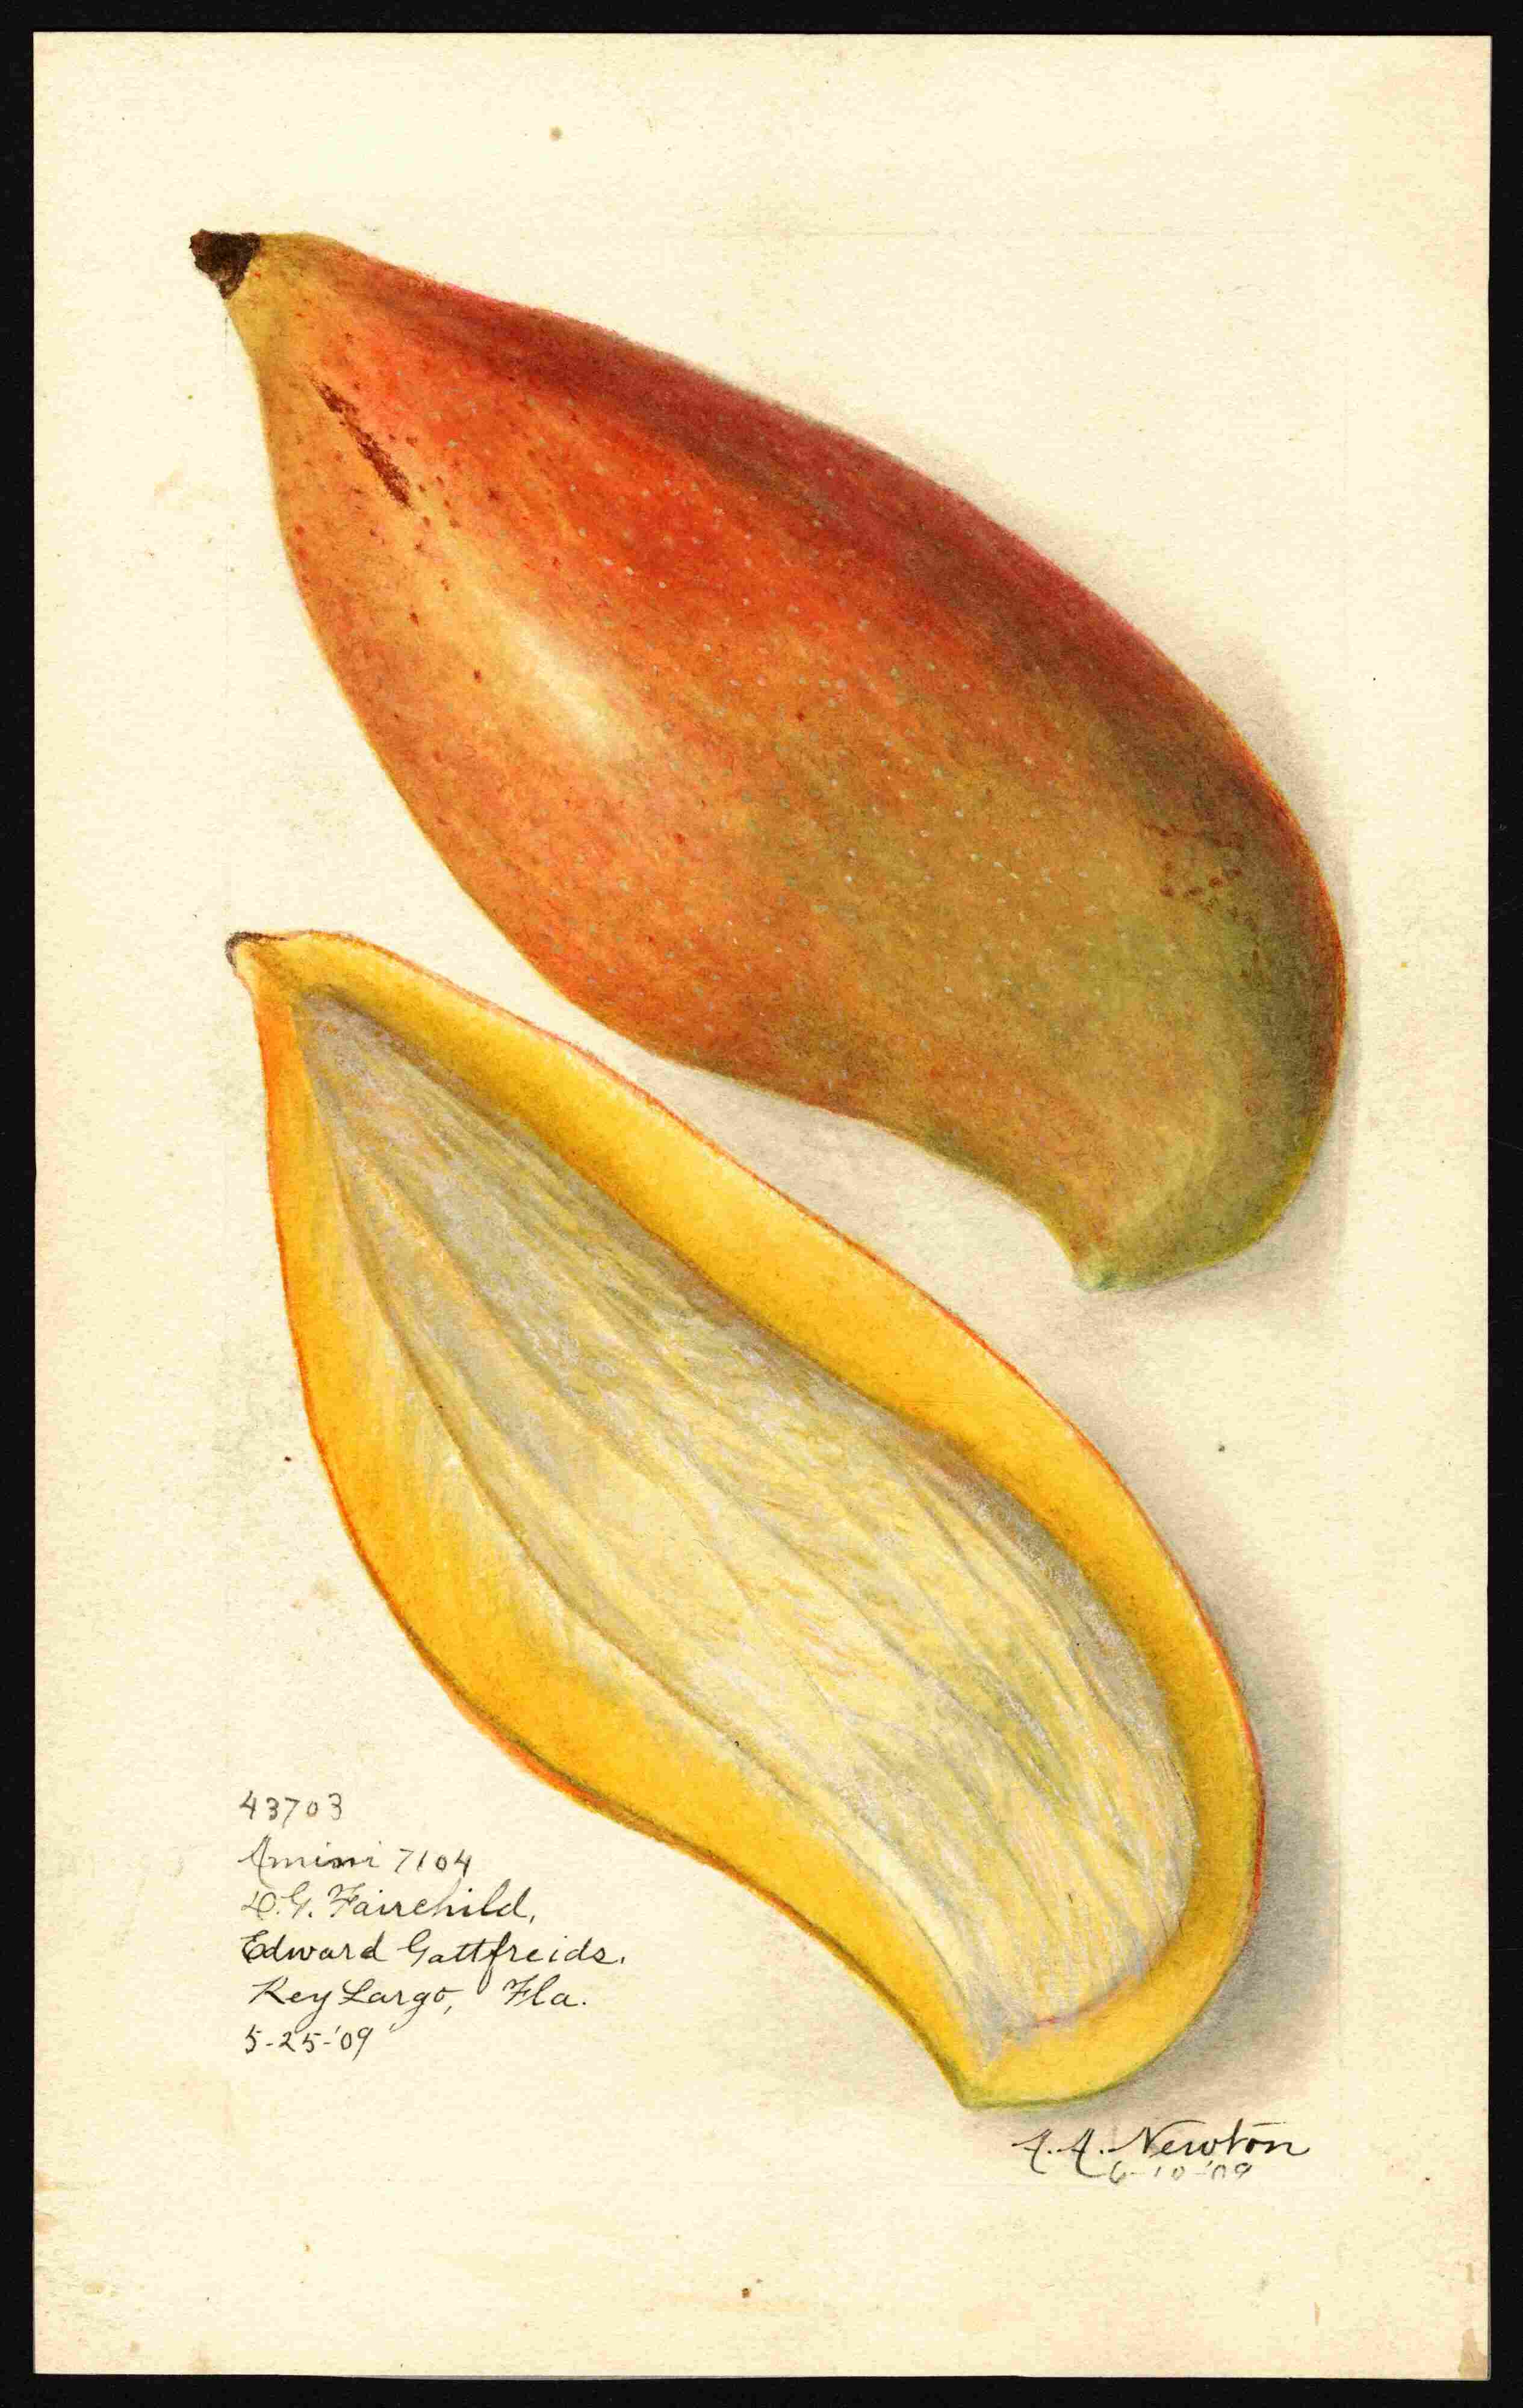 43703
Amini 7104
D.G. Fairchild,
Edward Gattfreids.
Key Largo, Fla.
5-25-'09
A.A. Newton
6-10-'09